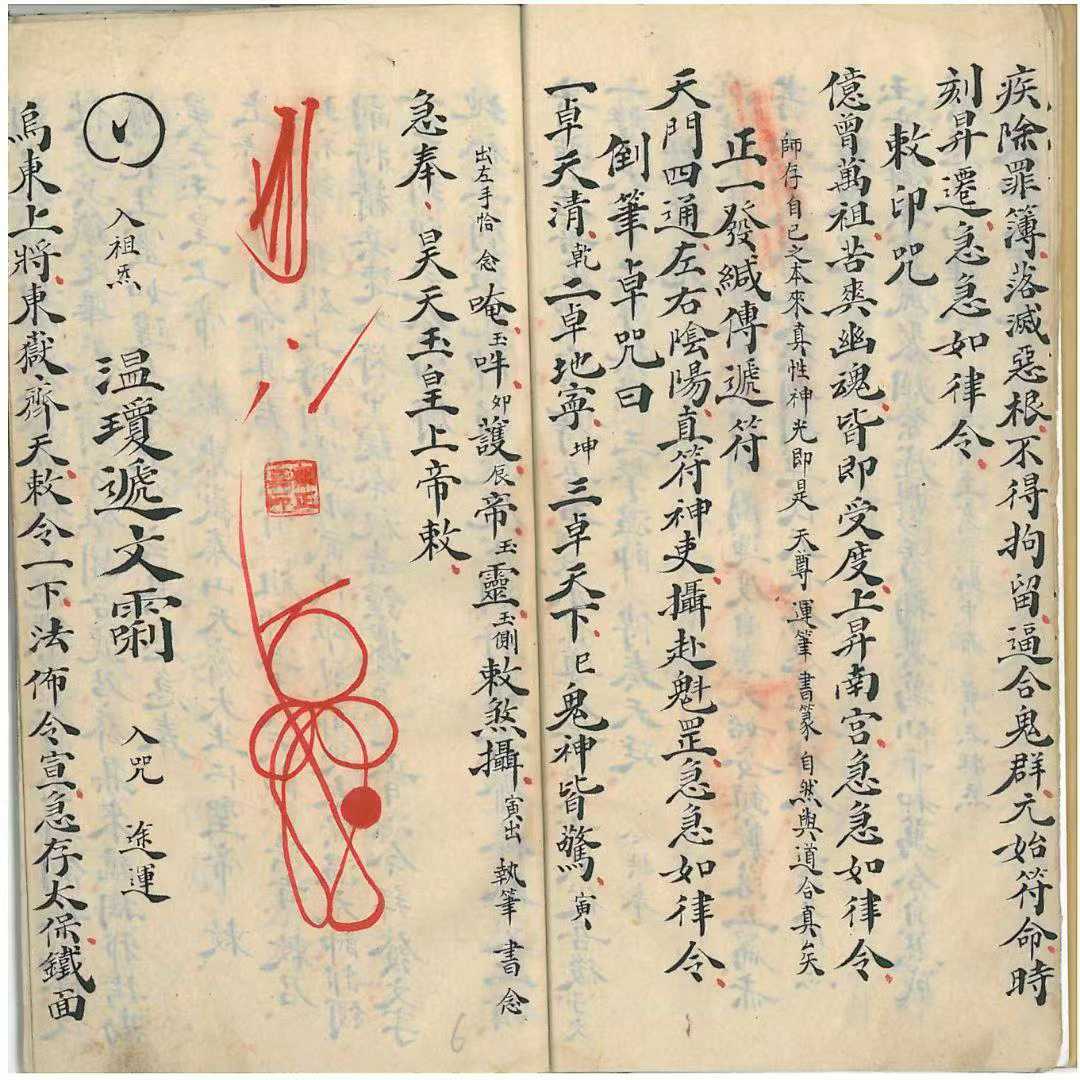 疾除罪簿、落滅惡根、不得拘留、逼合鬼群、元始符命、時
刻昇遷、急急如律令、
敕印咒
億曾萬祖、苦爽幽魂、皆即受度、上昇南宮、急急如律令、
師存自己之本來真性神光即是 天尊 運筆 書篆 自然與道合真矣
正一發緘傳遞符
天門四通、左右陰陽、直符神吏、攝赴魁罡、急急如律令、
倒筆卓咒曰
一卓天清、乾二卓地寧、坤 三卓天下、巳鬼神皆驚、寅
出左手恰 念唵玉吽、卯護辰帝玉靈玉側敕煞攝、寅出 執筆 書念
急奉、昊天玉皇上帝敕、
入祖炁 温瓊遞文 入咒 途運
烏東上將、東嶽齊天、敕令一下、法佈令宣、急存太保、鐵面